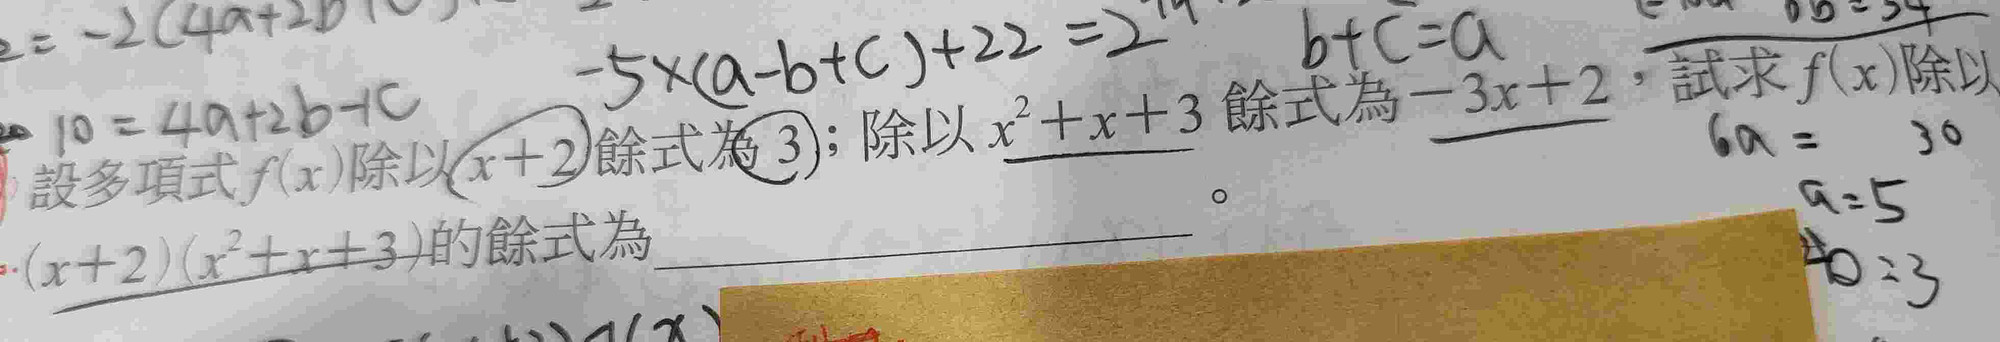 = -2(4a+2b+c)
-5×(a-b+c)+22=2
b+c=a
10=4a+2b+c
設多項式 f(x)除以(x+2)餘式為 3;除以 x²+x+3 餘式為-3x+2,試求 f(x)除以
(x+2)(x²+x+3)的餘式為____________。
6a= 30
a=5
b=3